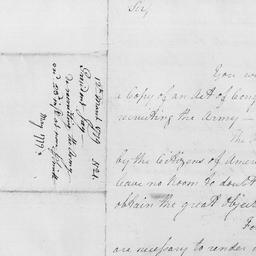 Sir,
You w
a Copy of an Act of Cong
recruiting the Army —
The
by the Citizens of Amer
leave no Room to doubt
obtain the great Object
Fo
are necessary to render
March 1779
President Jay
recruiting the Army
May 1779